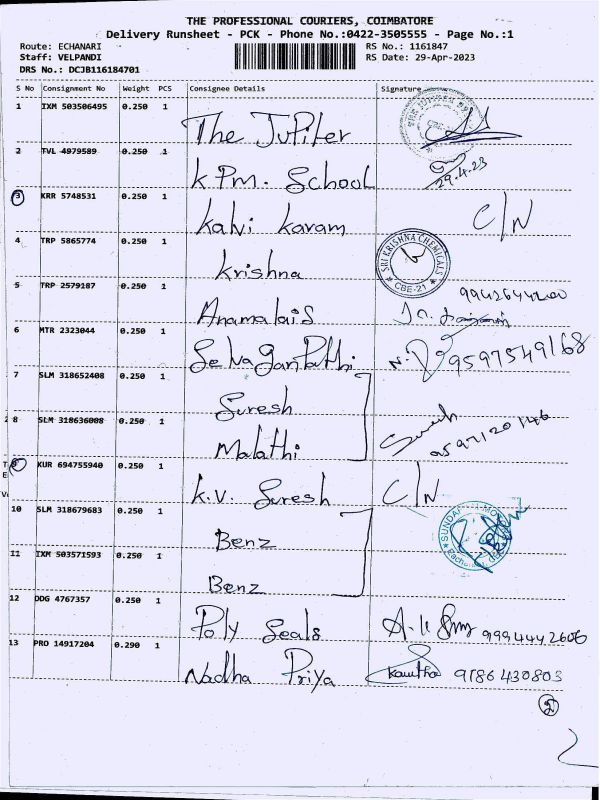 THE PROFESSIONAL COURIERS, COIMBATORE
Delivery Runsheet - PCK - Phone No.:0422-3505555 - Page No.:1
Route: ECHANARI RS No.: 1161847
Staff: VELPANDI RS Date: 29-Apr-2023
DRS No.: DCJB116184701
S No Consignment No Weight PCS Consignee Details Signature
1 IXM 503506495 0.250 1 The Jupiter
2 TVL 4979589 0.250 1 K Pm. School 29.4.23
3 KRR 5748531 0.250 1 Kalvi Karam C/N
4 TRP 5865774 0.250 1 Krishna SRI KRISHNA CHEMICALS CBE-21
5 TRP 2579287 0.250 1 Anamalais 9942644200
6 MTR 2323044 0.250 1 Selva Ganpathi 9597549168
7 SLM 318652408 0.250 1 Suresh
8 SLM 318636008 0.250 1 Malathi Suresh 9597120146
9 KUR 694755940 0.250 1 K.V. Suresh C/N
10 SLM 318679683 0.250 1 Benz
11 IXM 503571593 0.250 1 Benz
12 DDG 4767357 0.250 1 Poly Seals 9994442606
13 PRO 14917204 0.290 1 Nadha Priya Kavitha 9186430803
2